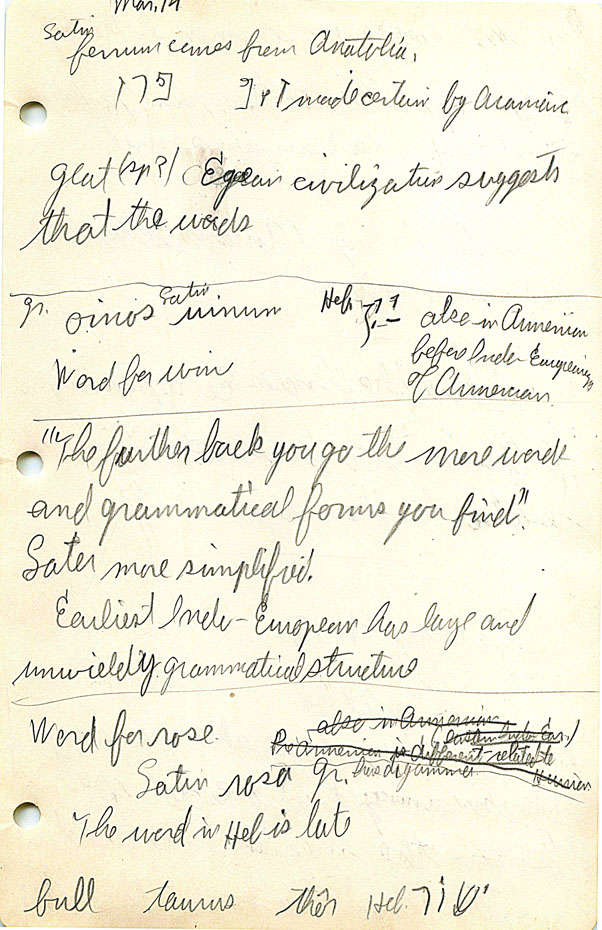 Mar. 19
Latin
ferrum comes from Anatolia.
made certain by Aramaic
great (sp?) Egean civilization suggests
that the words
gr. oinos Latin vinum Heb. יין also in Armenian
before Indo-Europeanizing
Word for wine of Armenian
"The further back you go the more words
and grammatical forms you find".
Later more simplified.
Earliest Indo-European has large and
unwieldy grammatical structure
Word for rose also in Armenian (Eastern Indo Eur.)
Armenian is different related to
Latin rosa gr. has digamma
The word in Heb is late
bull taurus Heb. שור